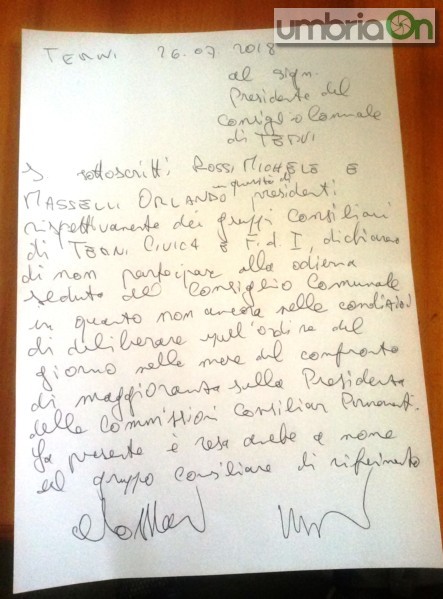 umbriaOn
TERNI 26.07.2018
al sign.
Presidente del
Consiglio Comunale
di TERNI
I sottoscritti ROSSI MICHELE E
MASSELLI ORLANDO in qualità di presidenti
rispettivamente dei gruppi Consiliari
di TERNI CIVICA E F.d.I, dichiarano
di non partecipar alla odierna
seduta del Consiglio Comunale
in quanto non ancora nelle condizioni
di deliberare sull'ordine del
giorno nelle more del confronto
di maggioranza sulla Presidenza
delle Commissioni Consiliari Permanenti.
La presente è resa anche a nome
del gruppo consiliare di riferimento